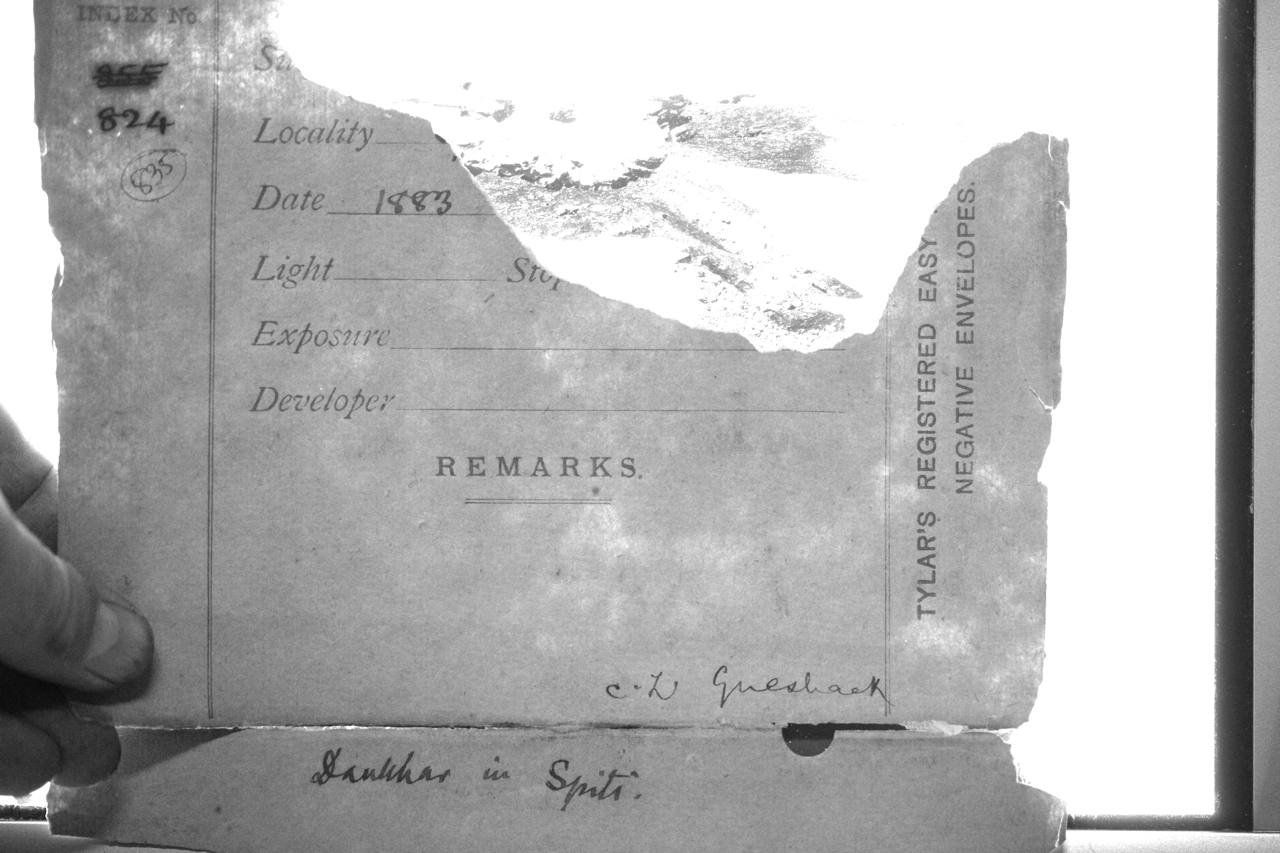 INDEX No.
824
835
Locality
Date 1883
Light
Exposure
Developer
REMARKS.
TYLAR'S REGISTERED EASY
NEGATIVE ENVELOPES.
C. L Griesback
Dankhar in Spiti.